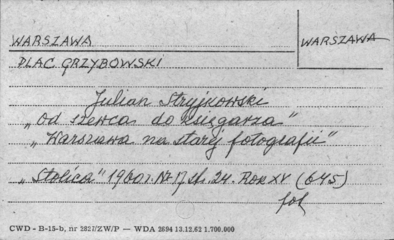 WARSZAWA
WARSZAWA
PLAC GRZYBOWSKI
Julian Stryjkowski
„Od szewca do księgarza”
„Warszawa na starej fotografii”
„Stolica” 1960 r. Nr 17, st. 24. Rok XV (645)
fot
CWD - B-15-b, nr 2827/ZW/P — WDA 2694 13.12.62 1.700.000